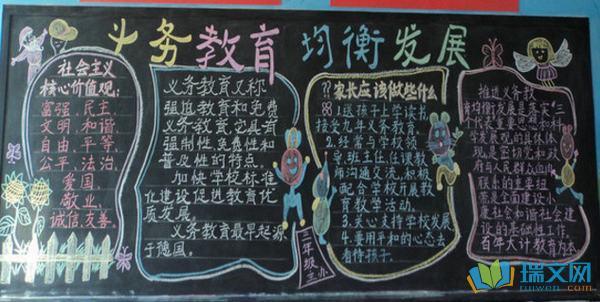 义务教育 均衡发展
社会主义
核心价值观：
富强、民主、
文明、和谐、
自由、平等、
公平、法治、
爱国、
敬业、
诚信、友善。
义务教育又称
强迫教育和免费
义务教育，它具有
强制性、免费性和
普及性的特点。
加快学校标准
化建设促进教育优
质发展。
义务教育最早起源
于德国。
三年级主办
??家长应该做些什么
1.送孩子上学读书
接受九年义务教育。
2.经常与学校领
导班主任、任课教
师沟通交流，积极
配合学校开展教
育教学活动。
3.关心支持学校发展
4.要用平和的心态去
看待孩子。
推进义务教
育均衡发展是落实"三
个代表重要思想和科
学发展观的具体体
现，是密切党和政
府与人民群众血肉
联系的主要组
带是全面建设小
康社会和谐社会建
设的基础性工作。
百年大计教育为本
瑞文网
ruiwen.com